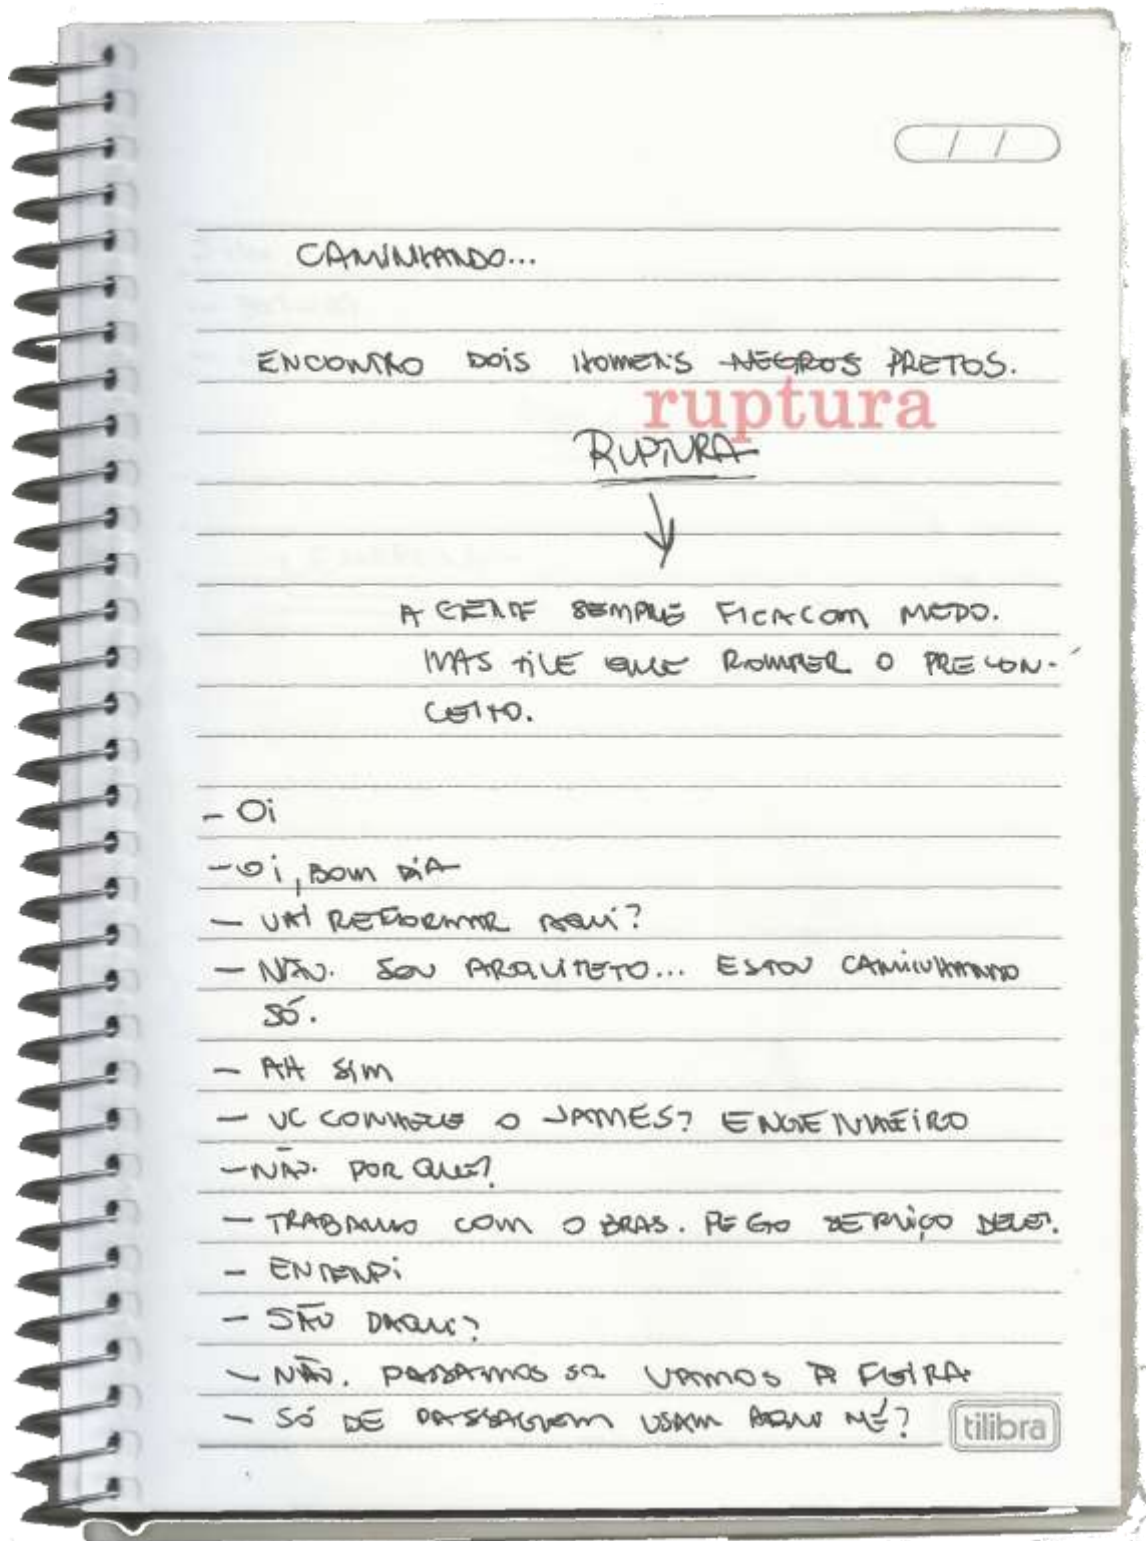 / /
CAMINHANDO...
ENCONTRO DOIS HOMENS NEGROS PRETOS.
ruptura
RUPTURA
A GENTE SEMPRE FICA COM MEDO.
MAS TIVE QUE ROMPER O PRECON-
CEITO.
- Oi
- Oi, BOM DIA
- VAI REFORMAR AQUI?
- NÃO. SOU ARQUITETO... ESTOU CAMINHANDO
SÓ.
- AH SIM
- VC CONHECE O JAMES? ENGENHEIRO
- NÃO. POR QUE?
- TRABALHO COM OBRAS. PEGO SERVIÇO DELE.
- ENTENDI
- SÃO DAQUI?
- NÃO. PASSAMOS VAMOS À FEIRA
- SÓ DE PASSAGEM USAM AQUI NÉ?
tilibra